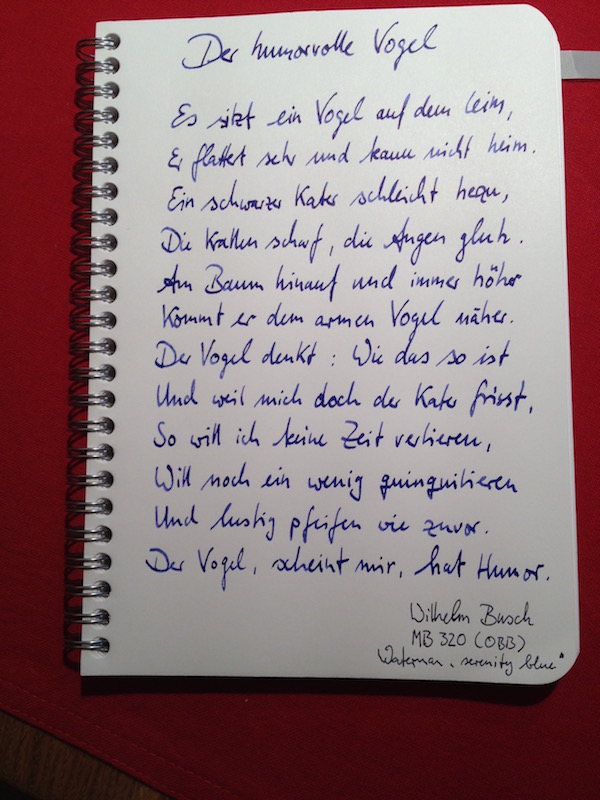 Der humorvolle Vogel
Es sitzt ein Vogel auf dem Leim,
Er flattert sehr und kann nicht heim.
Ein schwarzer Kater schleicht herzu,
Die Krallen scharf, die Augen gluh.
Am Baum hinauf und immer höher
Kommt er dem armen Vogel näher.
Der Vogel denkt: Wie das so ist
Und weil mich doch der Kater frisst,
So will ich keine Zeit verlieren,
Will noch ein wenig quinquilieren
Und lustig pfeifen wie zuvor.
Der Vogel, scheint mir, hat Humor.
Wilhelm Busch
MB 320 (OBB)
Waterman "serenity blue"